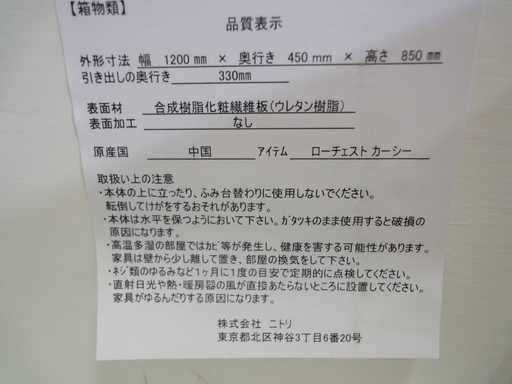 【箱物類】
品質表示
外形寸法 幅 1200 mm × 奥行き 450 mm × 高さ 850 mm
引き出しの奥行き 330mm
表面材 合成樹脂化粧繊維板(ウレタン樹脂)
表面加工 なし
原産国 中国 アイテム ローチェスト カーシー
取扱い上の注意
・本体の上に立ったり、ふみ台替わりに使用しないでください。
転倒してけがをするおそれがあります。
・本体は水平を保つようにおいて下さい。ガタツキのまま使用すると破損の
原因になります。
・高温多湿の部屋ではカビ等が発生し、健康を害する可能性があります。
家具は壁から少し離して置き、部屋の換気をして下さい。
・ネジ類のゆるみなど1ヶ月に1度の目安で定期的に点検してください。
・直射日光や熱・暖房器の風が直接あたらないところに設置してください。
家具がゆるんだりする原因になります。
株式会社 ニトリ
東京都北区神谷3丁目6番20号